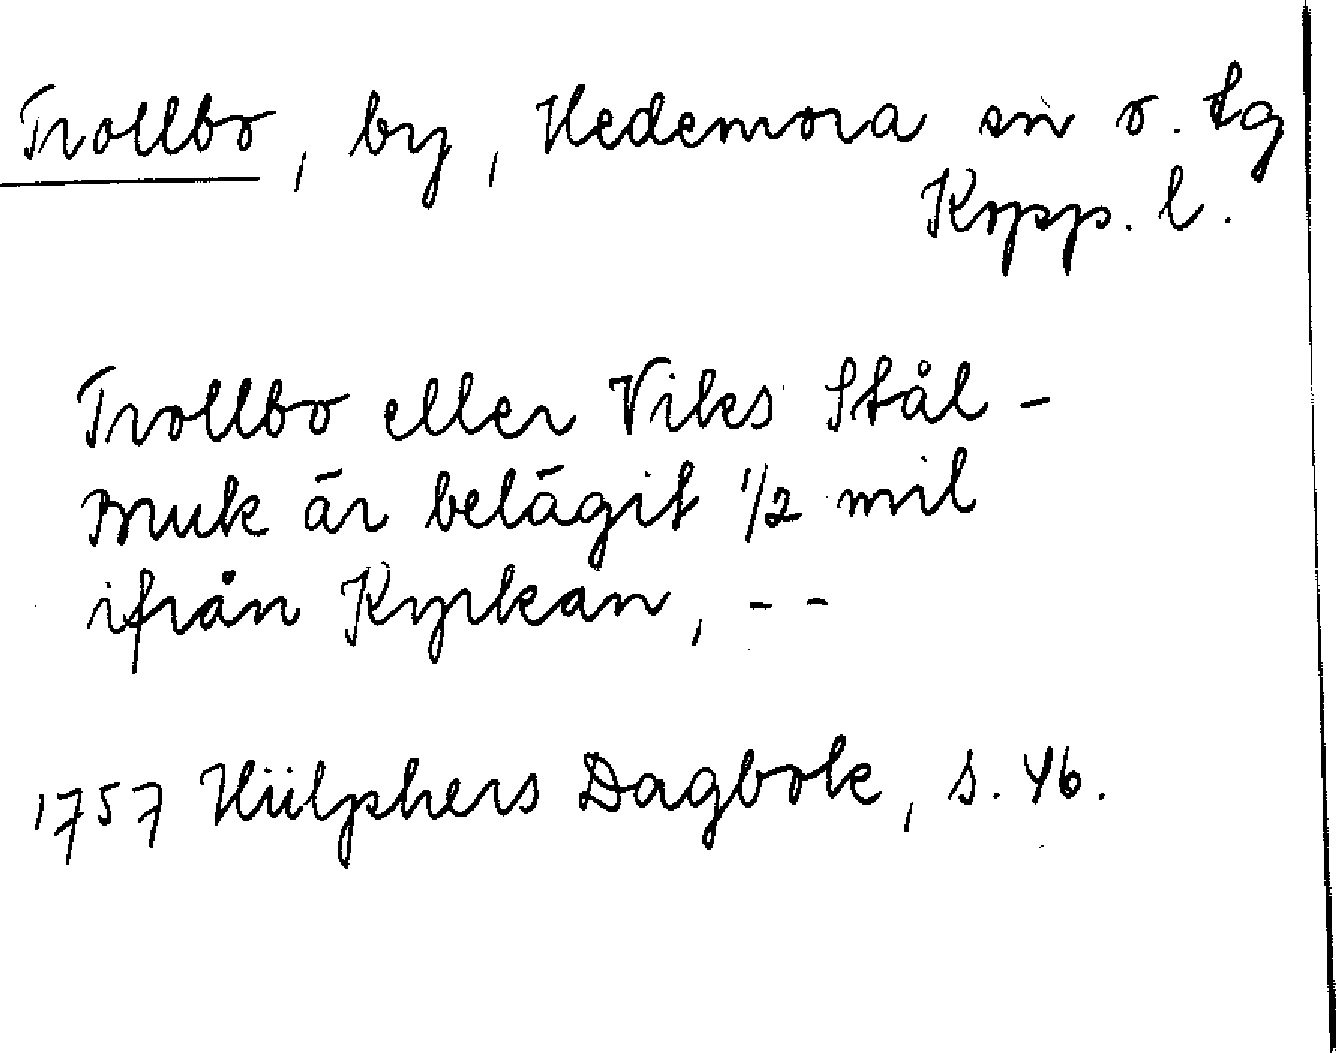 Trollbo, by, Hedemora sn o. tg
Kopp. l.
Trollbo eller Viks Stål-
Bruk är belägit 1/2 mil
ifrån Kyrkan, - -
1757 Hülphers Dagbok, s. 46.